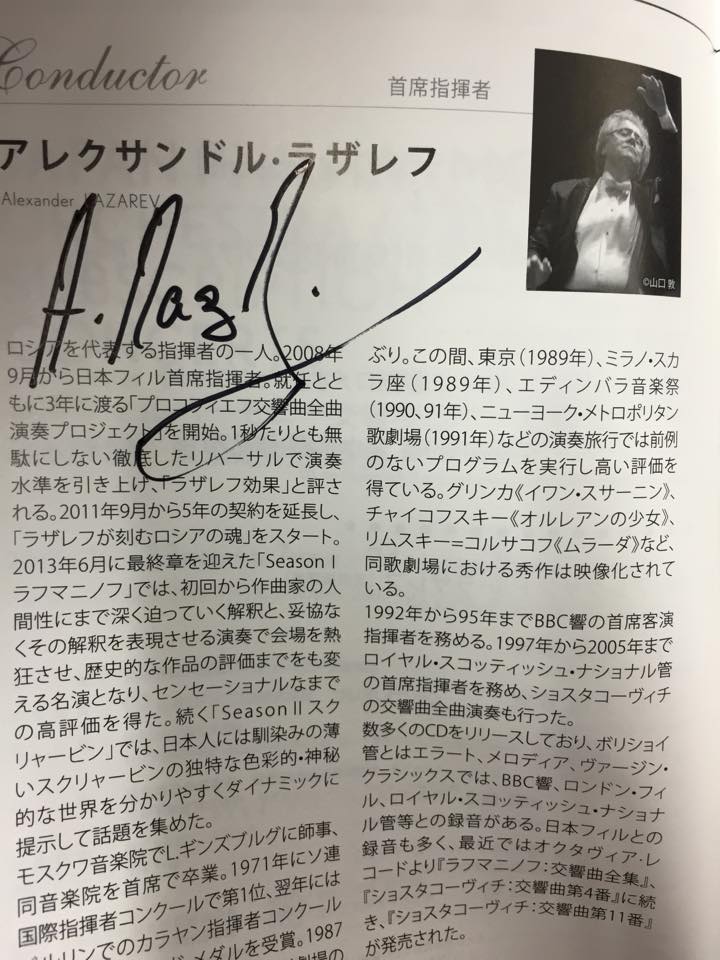 Conductor
首席指揮者
アレクサンドル・ラザレフ
Alexander LAZAREV
A. Лаз
©山口 敦
ロシアを代表する指揮者の一人。2008年
9月から日本フィル首席指揮者。就任とと
もに3年に渡る「プロコフィエフ交響曲全曲
演奏プロジェクト」を開始。1秒たりとも無
駄にしない徹底したリハーサルで演奏
水準を引き上げ、「ラザレフ効果」と評さ
れる。2011年9月から5年の契約を延長し、
「ラザレフが刻むロシアの魂」をスタート。
2013年6月に最終章を迎えた「Season I
ラフマニノフ」では、初回から作曲家の人
間性にまで深く迫っていく解釈と、妥協な
くその解釈を表現させる演奏で会場を熱
狂させ、歴史的な作品の評価までをも変
える名演となり、センセーショナルなまで
の高評価を得た。続く「Season II スク
リャービン」では、日本人には馴染みの薄
いスクリャービンの独特な色彩的・神秘
的な世界を分かりやすくダイナミックに
提示して話題を集めた。
モスクワ音楽院でL.ギンズブルグに師事、
同音楽院を首席で卒業。1971年にソ連
国際指揮者コンクールで第1位、翌年には
ベルリンでのカラヤン指揮者コンクール
メダルを受賞。1987
ぶり。この間、東京（1989年）、ミラノ・スカ
ラ座（1989年）、エディンバラ音楽祭
（1990、91年）、ニューヨーク・メトロポリタン
歌劇場（1991年）などの演奏旅行では前例
のないプログラムを実行し高い評価を
得ている。グリンカ《イワン・スサーニン》、
チャイコフスキー《オルレアンの少女》、
リムスキー=コルサコフ《ムラーダ》など、
同歌劇場における秀作は映像化されて
いる。
1992年から95年までBBC響の首席客演
指揮者を務める。1997年から2005年まで
ロイヤル・スコッティッシュ・ナショナル管
の首席指揮者を務め、ショスタコーヴィチ
の交響曲全曲演奏も行った。
数多くのCDをリリースしており、ボリショイ
管とはエラート、メロディア、ヴァージン・
クラシックスでは、BBC響、ロンドン・フィ
ル、ロイヤル・スコッティッシュ・ナショナ
ル管等との録音がある。日本フィルとの
録音も多く、最近ではオクタヴィア・レ
コードより『ラフマニノフ：交響曲全集』、
『ショスタコーヴィチ：交響曲第4番』に続
き、『ショスタコーヴィチ：交響曲第11番』
が発売された。